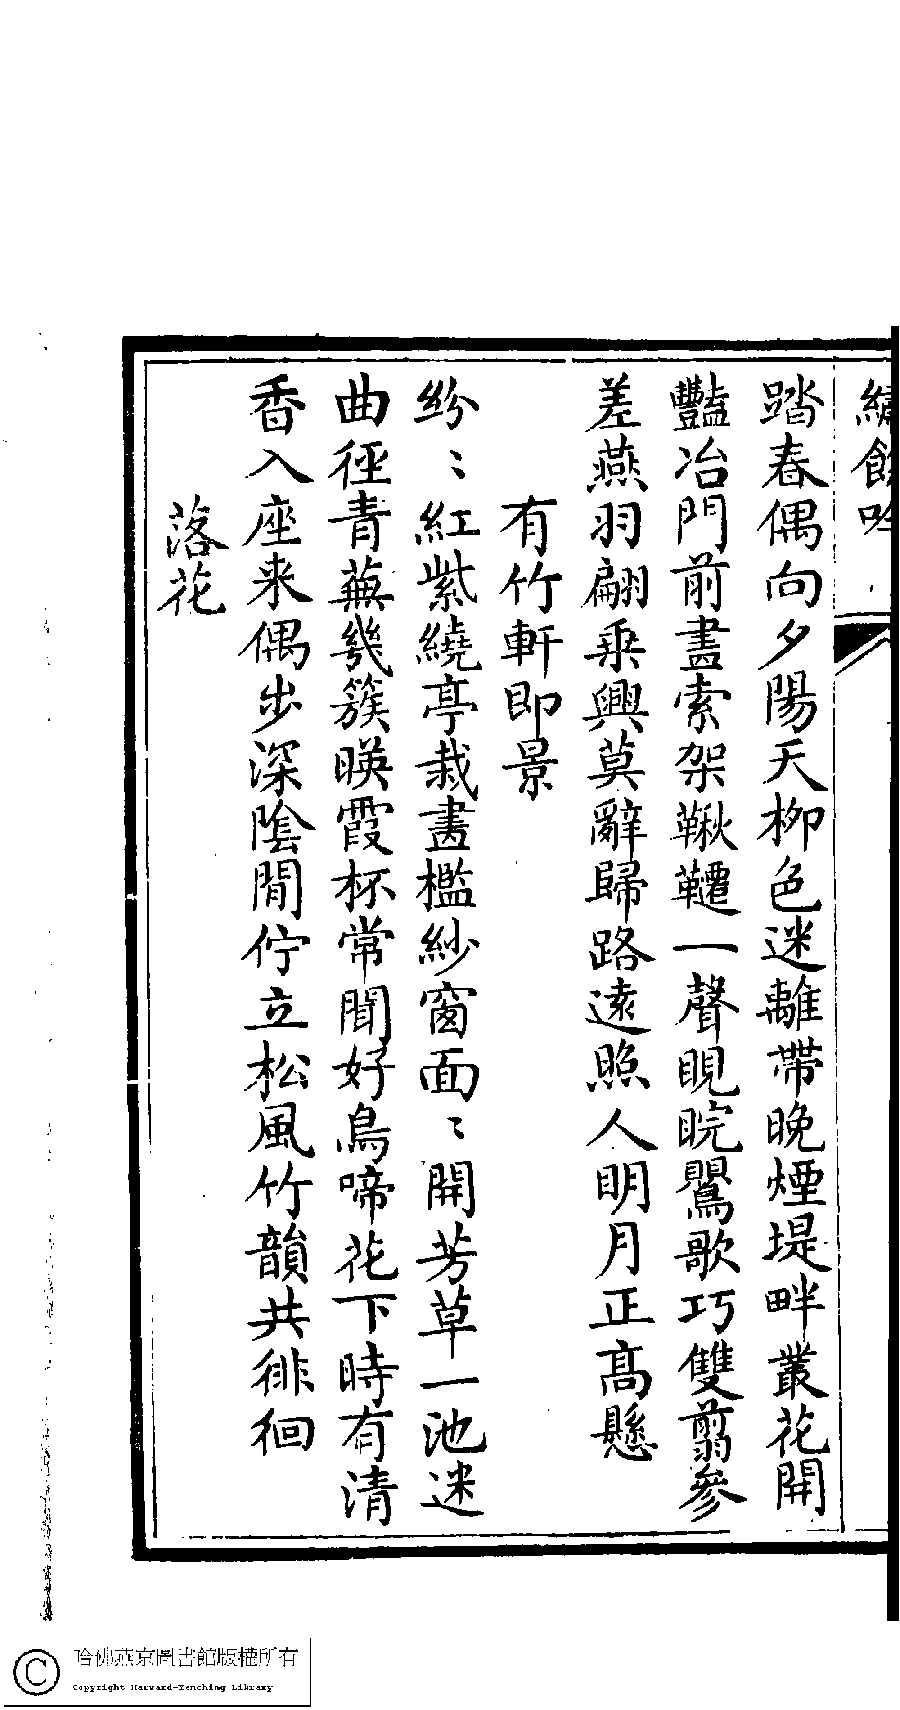 繡餘吟
踏春偶向夕陽天柳色迷離帶晚煙堤畔叢花開
豔冶門前畫索架鞦韆一聲睍睆鸎歌巧雙翦參
差燕羽翩乘興莫辭歸路遠照人明月正高懸
有竹軒即景
紛〻紅紫繞亭栽畵檻紗窗面〻開芳草一池迷
曲徑青蕪幾簇暎霞杯常聞好鳥啼花下時有清
香入座来偶步深陰閒佇立松風竹韻共徘徊
落花
哈佛燕京圖書館版權所有
Copyright Harvard-Yenching Library